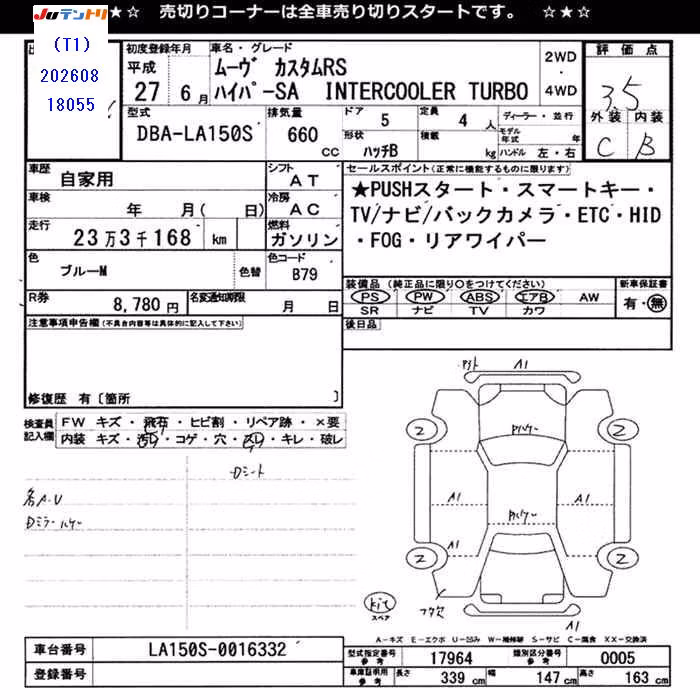 ☆★☆ 売切りコーナーは全車売り切りスタートです。 ☆★☆
Juテントリ
(T1)
202608
18055
初度登録年月
平成
27 6月
車名・グレード
ムーヴ カスタムRS
ハイパーSA INTERCOOLER TURBO
2WD
・
4WD
評価点
3.5
外装 内装
C B
型式
DBA-LA150S
排気量
660
cc
ドア
5
形状
ハッチB
定員
4 人
積載
kg
ディーラー・並行
モデル年式 年
ハンドル 左・右
車歴
自家用
シフト
AT
車検
年 月( 日)
冷房
AC
走行
23万3千168 km
燃料
ガソリン
色
ブルーM
色替
色コード
B79
R券
8,780 円
名変通知期限
月 日
セールスポイント(正常に機能するものに限ります)
★PUSHスタート・スマートキー・
TV/ナビ/バックカメラ・ETC・HID
・FOG・リアワイパー
装備品(純正品に限り○をつけてください)
PS PW ABS エアB AW
SR ナビ TV カワ
新車保証書
有・無
後日品
注意事項申告欄(不具合内容等は具体的に記入して下さい)
修復歴 有〔箇所 〕
検査員
記入欄
FW キズ・飛石・ヒビ割・リペア跡・×要
内装 キズ・汚レ・コゲ・穴・スレ・キレ・破レ
Dシート
各A.U
A1
2 2
A1 A1
A1
2 2
kit
スペア
A1
A-キズ E-エクボ U-凹み W-補修跡 S-サビ C-腐食 XX-交換済
車台番号
LA150S-0016332
登録番号
型式指定番号
参考
17964
類別区分番号
参考
0005
車庫証明用
参考
長さ
339 cm
幅
147 cm
高さ
163 cm